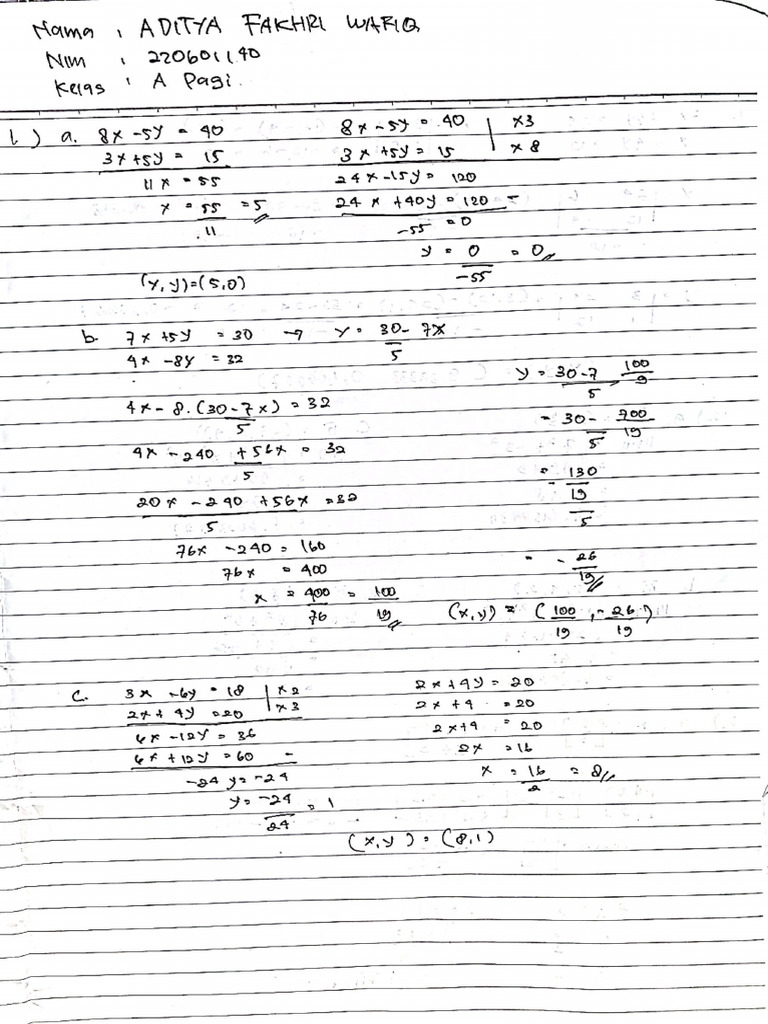 Nama : ADITYA FAKHRI WARIQ
Nim : 220601140
Kelas : A Pagi.
1) a. 8x - 5y = 40
3x + 5y = 15
11x = 55
x = 55/11 = 5
8x - 5y = 40 | x3
3x + 5y = 15 | x8
24x - 15y = 120
24x + 40y = 120 -
-55 = 0
y = 0/-55 = 0
(x,y) = (5,0)
b. 7x + 5y = 30 → y = 30 - 7x/5
4x - 8y = 32
4x - 8. (30 - 7x)/5 = 32
4x - 240 + 56x/5 = 32
20x - 240 + 56x/5 = 32
76x - 240 = 160
76x = 400
x = 400/76 = 100/19
y = 30 - 7 100/9/5
= 30 - 700/19/5
= - 130/19/5
= - 26/19
(x,y) = (100/19, -26/19)
c. 3x - 6y = 18 | x2
2x + 4y = 20 | x3
6x - 12y = 36
6x + 12y = 60 -
-24y = -24
y = -24/24 = 1
2x + 4y = 20
2x + 4 = 20
2x + 4 = 20
2x = 16
x = 16/2 = 8
(x,y) = (8,1)